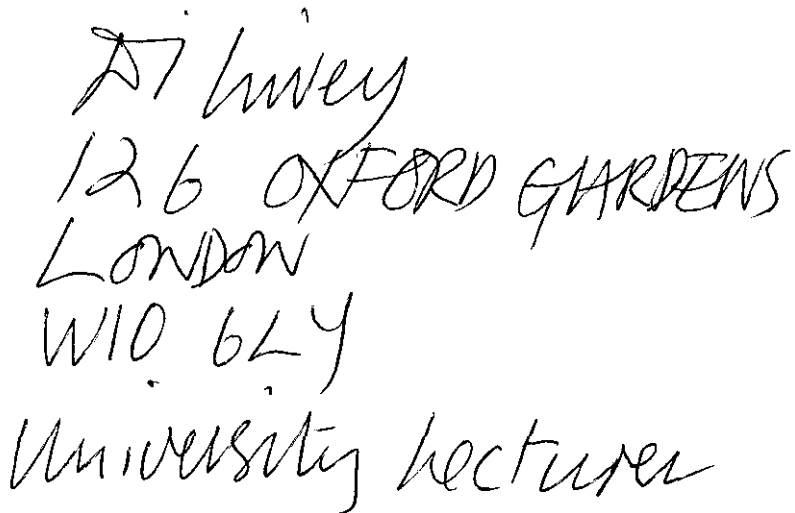 Di Livey
126 OXFORD GARDENS
LONDON
W10 6LY
University Lecturer